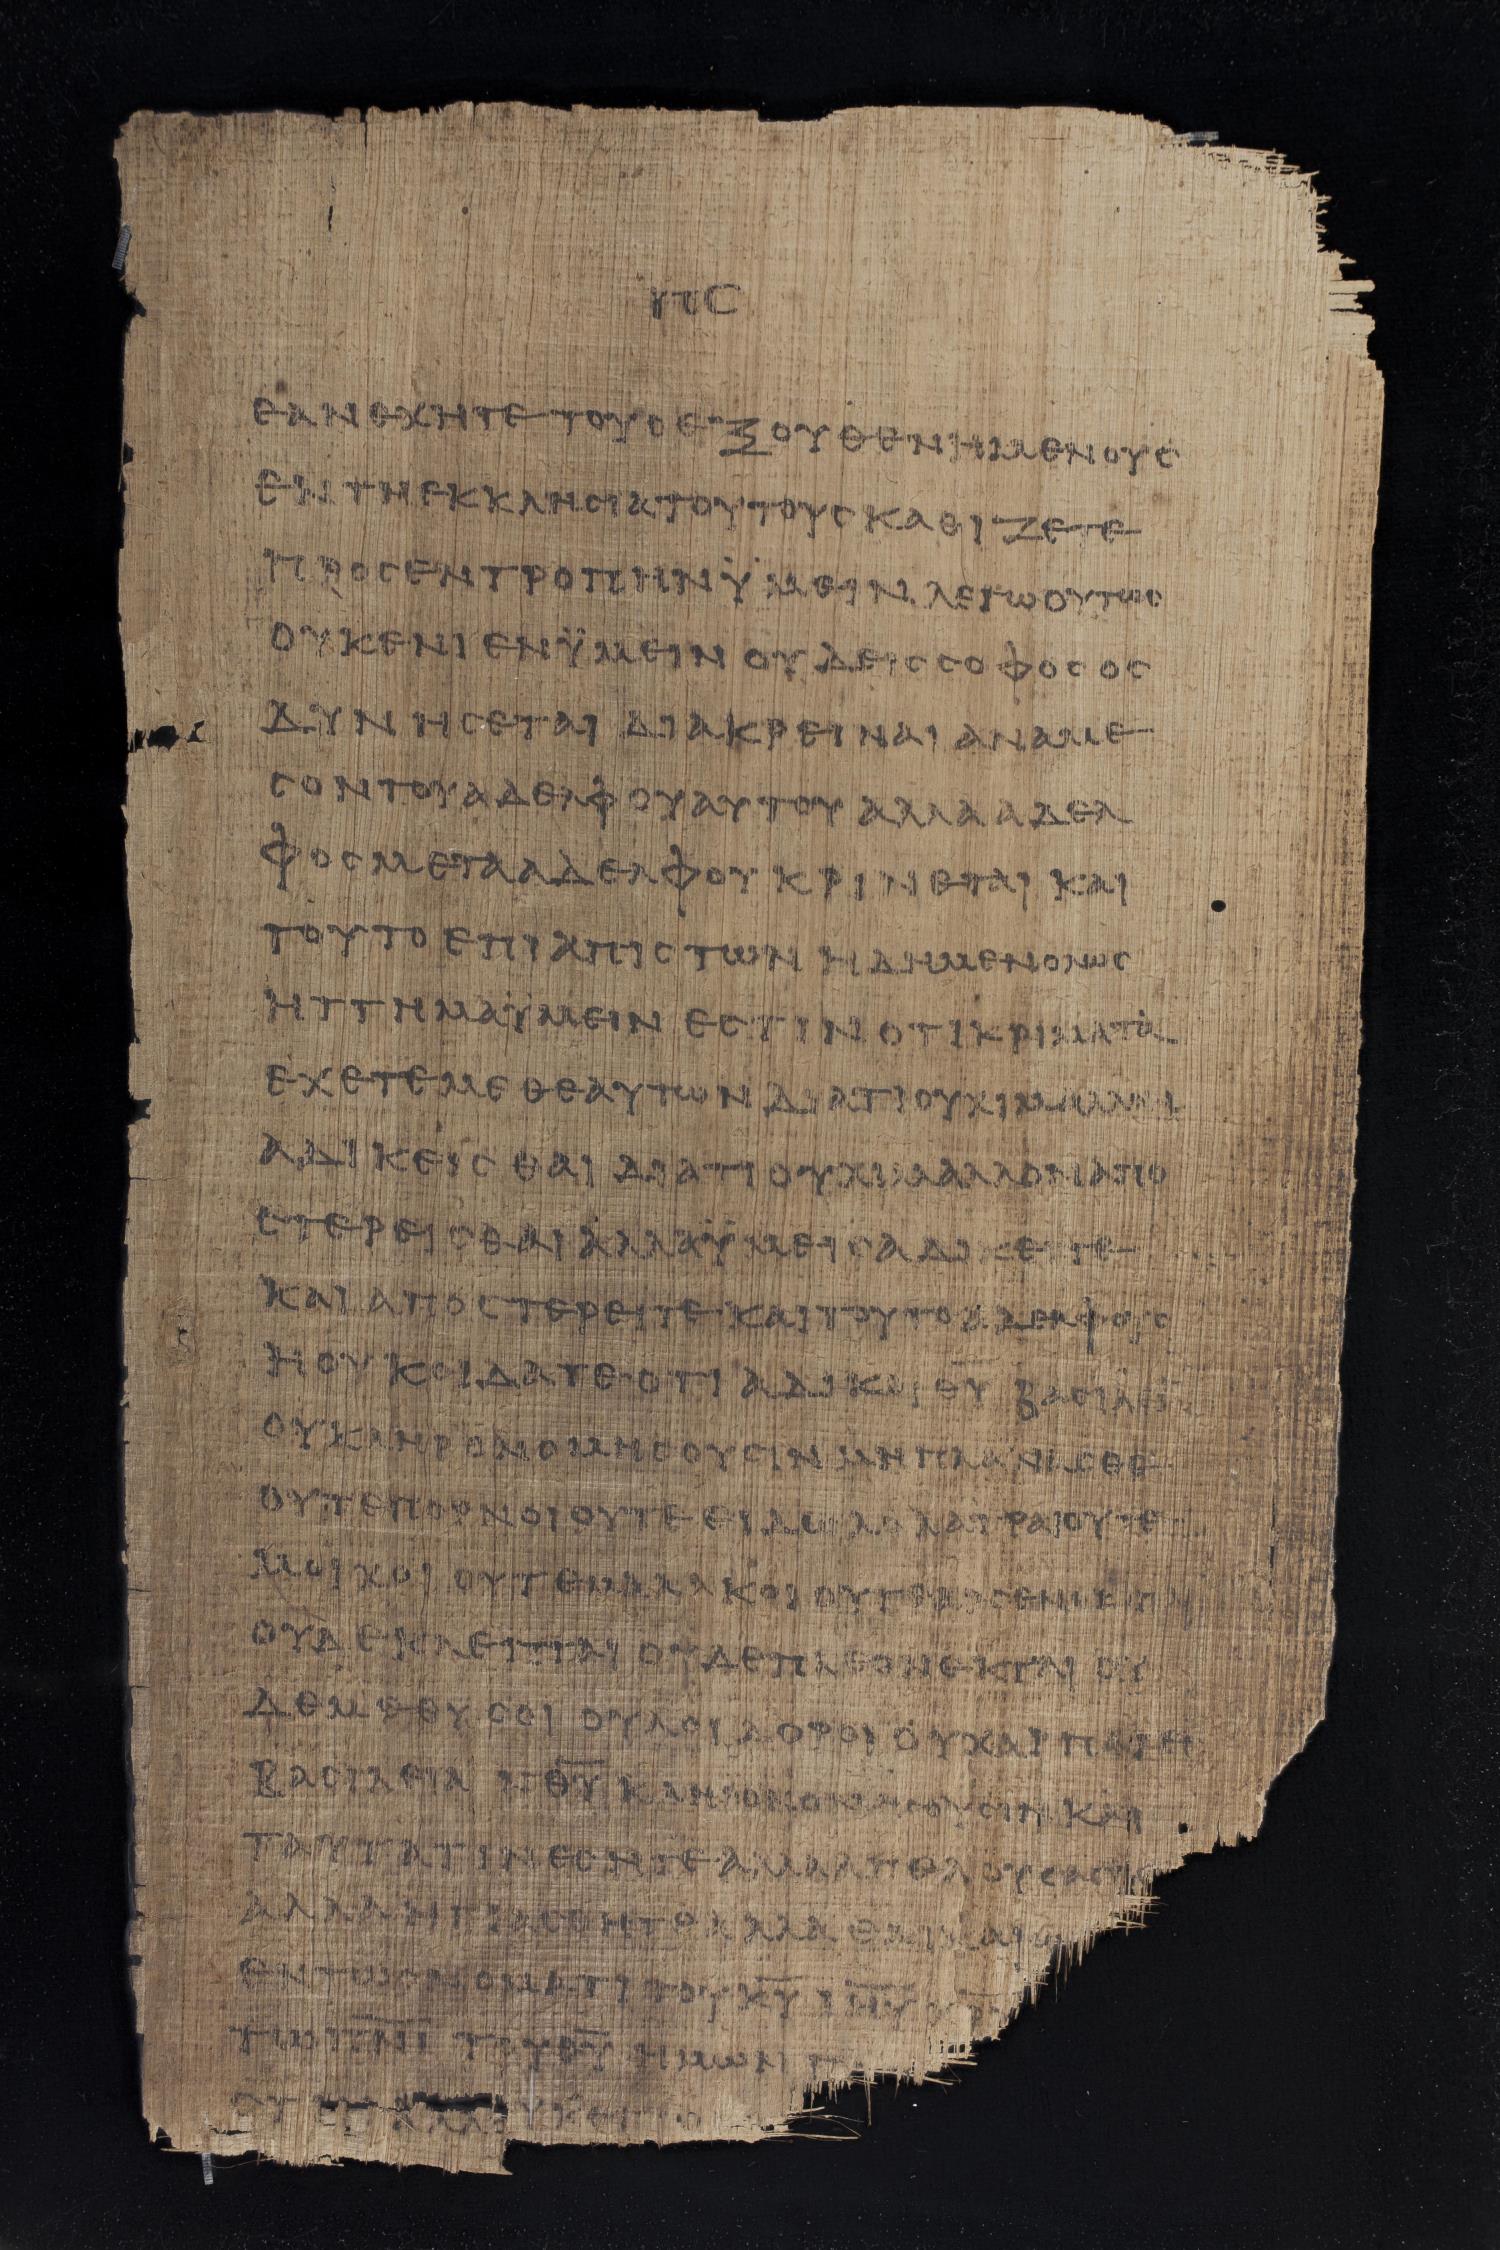 ΡΠϹ
ΕΑΝ ΕΧΗΤΕ ΤΟΥϹ ΕΞΟΥΘΕΝΗΜΕΝΟΥϹ
ΕΝ ΤΗ ΕΚΚΛΗϹΙΑ ΤΟΥΤΟΥϹ ΚΑΘΙΖΕΤΕ
ΠΡΟϹ ΕΝΤΡΟΠΗΝ ΫΜΕΙΝ ΛΕΓΩ ΟΥΤΩϹ
ΟΥΚ ΕΝΙ ΕΝ ΫΜΕΙΝ ΟΥΔΕΙϹ ϹΟΦΟϹ ΟϹ
ΔΥΝΗϹΕΤΑΙ ΔΙΑΚΡΕΙΝΑΙ ΑΝΑ ΜΕ
ϹΟΝ ΤΟΥ ΑΔΕΛΦΟΥ ΑΥΤΟΥ ΑΛΛΑ ΑΔΕΛ
ΦΟϹ ΜΕΤΑ ΑΔΕΛΦΟΥ ΚΡΙΝΕΤΑΙ ΚΑΙ
ΤΟΥΤΟ ΕΠΙ ΑΠΙϹΤΩΝ ΗΔΗ ΜΕΝ ΟΛΩϹ
ΗΤΤΗΜΑ ΫΜΕΙΝ ΕϹΤΙΝ ΟΤΙ ΚΡΙΜΑΤΑ
ΕΧΕΤΕ ΜΕΘ ΕΑΥΤΩΝ ΔΙΑ ΤΙ ΟΥΧΙ
ΑΔΙΚΕΙϹΘΑΙ ΔΙΑ ΤΙ ΟΥΧΙ ΜΑΛΛΟΝ ΑΠΟ
ϹΤΕΡΕΙϹΘΑΙ ΑΛΛΑ ΫΜΕΙϹ ΑΔΙΚΕΙΤΕ
ΚΑΙ ΑΠΟϹΤΕΡΕΙΤΕ ΚΑΙ ΤΟΥΤΟ ΑΔΕΛΦΟΥϹ
Η ΟΥΚ ΟΙΔΑΤΕ ΟΤΙ ΑΔΙΚΟΙ Θ̅Υ̅ ΒΑϹΙΛΕΙ
ΟΥ ΚΛΗΡΟΝΟΜΗϹΟΥϹΙΝ ΜΗ ΠΛΑΝΑϹΘΕ
ΟΥΤΕ ΠΟΡΝΟΙ ΟΥΤΕ ΕΙΔΩΛΟΛΑΤΡΑΙ ΟΥΤΕ
ΜΟΙΧΟΙ ΟΥΤΕ ΜΑΛΑΚΟΙ ΟΥΤΕ ΑΡϹΕΝΟΚΟΙΤΑΙ
ΟΥΔΕ ΚΛΕΠΤΑΙ ΟΥΔΕ ΠΛΕΟΝΕΚΤΑΙ ΟΥ
ΔΕ ΜΕΘΥϹΟΙ ΟΥ ΛΟΙΔΟΡΟΙ ΟΥΧ ΑΡΠΑΓΕϹ
ΒΑϹΙΛΕΙΑΝ Θ̅Υ̅ ΚΛΗΡΟΝΟΜΗϹΟΥϹΙΝ ΚΑΙ
ΤΑΥΤΑ ΤΙΝΕϹ ΗΤΕ ΑΛΛΑ ΑΠΕΛΟΥϹΑϹΘΕ
ΑΛΛΑ ΗΓΙΑϹΘΗΤΕ ΑΛΛΑ
ΕΝ ΤΩ ΟΝΟΜΑΤΙ ΤΟΥ Κ̅Υ̅ Ι̅Η̅Υ̅ Χ̅Ρ̅
ΤΩ Π̅Ν̅Ι̅ ΤΟΥ Θ̅Υ̅ ΗΜΩΝ
ΑΛΛ ΟΥΚ